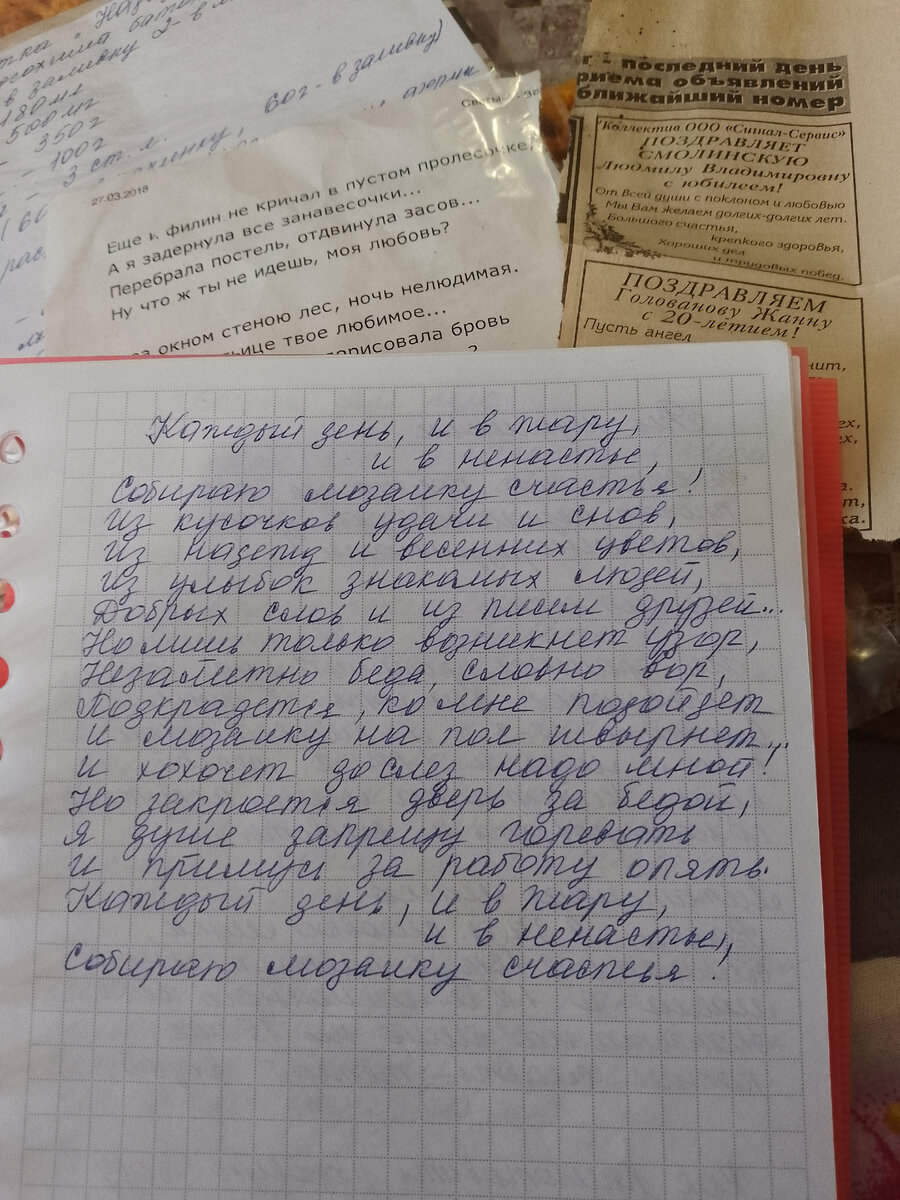 в заливку 2-
180мл
500мг
350г
100г
3 ст. л.
60г - в заливку)
27.03.2018
Еще и филин не кричал в пустом пролесочке,
А я задернула все занавесочки...
Перебрала постель, отдвинула засов...
Ну что ж ты не идешь, моя любовь?
за окном стеною лес, ночь нелюдимая.
твое любимое...
бровь
последний день
риема объявлений
ближайший номер
Коллектив ООО «Сигнал-Сервис»
ПОЗДРАВЛЯЕТ
СМОЛИНСКУЮ
Людмилу Владимировну
с юбилеем!
От всей души с поклоном и любовью
Мы Вам желаем долгих-долгих лет.
Большого счастья,
крепкого здоровья,
Хороших дел
и трудовых побед.
ПОЗДРАВЛЯЕМ
Голованову Жанну
с 20-летием!
Пусть ангел
Каждый день, и в жару,
и в ненастье,
Собираю мозаику счастья!
Из кусочков удачи и снов,
Из надежд и весенних цветов,
Из улыбок знакомых людей,
Добрых слов и из писем друзей...
Но лишь только возникнет узор,
Незаметно беда, словно вор,
Подкрадется, ко мне подойдет
И мозаику на пол швырнет...
И хохочет до слез надо мной!
Но закроется дверь за бедой,
Я душе запрещу горевать
И примусь за работу опять.
Каждый день, и в жару,
и в ненастье,
Собираю мозаику счастья!